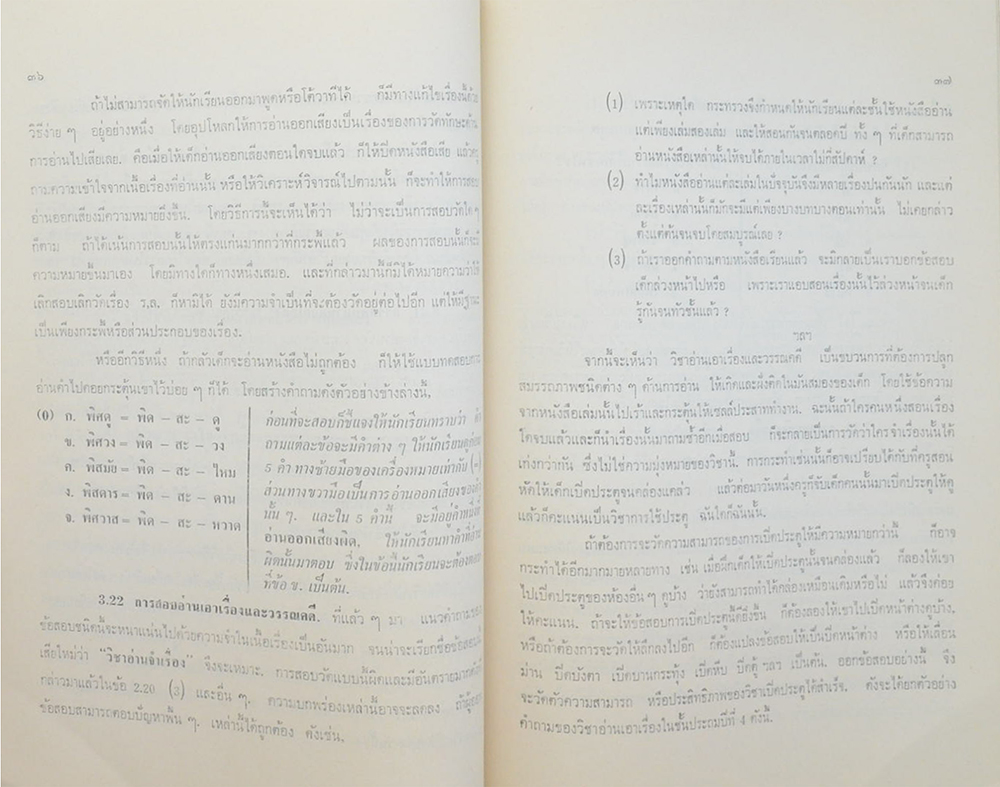 ๓๖
ถ้าไม่สามารถจัดให้นักเรียนออกมาพูดหรือโต้วาทีได้ ก็มีทางแก้ไขเรื่องนี้ด้วย
วิธีง่าย ๆ อยู่อย่างหนึ่ง โดยอุปโหลกให้การอ่านออกเสียงเป็นเรื่องของการวัดทักษะด้าน
การอ่านไปเสียเลย. คือเมื่อให้เด็กอ่านออกเสียงตอนใดจบแล้ว ก็ให้ปิดหนังสือเสีย แล้ว
ถามความเข้าใจจากเนื้อเรื่องที่อ่านนั้น หรือให้วิเคราะห์วิจารณ์ไปตามนั้น ก็จะทำให้การสอบ
อ่านออกเสียงมีความหมายยิ่งขึ้น. โดยวิธีการนี้จะเห็นได้ว่า ไม่ว่าจะเป็นการสอบวัดใด ๆ
ก็ตาม ถ้าได้เน้นการสอบนั้นให้ตรงแก่นมากกว่าที่กระพี้แล้ว ผลของการสอบนั้นก็จะมี
ความหมายขึ้นมาเอง โดยมีทางใดก็ทางหนึ่งเสมอ. และที่กล่าวมานี้ก็มิได้หมายความว่าให้
เลิกสอบเลิกวัดเรื่อง ร.ล. ก็หามิได้ ยังมีความจำเป็นที่จะต้องวัดอยู่ต่อไปอีก แต่ให้มีฐานะ
เป็นเพียงกระพี้หรือส่วนประกอบของเรื่อง.
หรืออีกวิธีหนึ่ง ถ้ากลัวเด็กจะอ่านหนังสือไม่ถูกต้อง ก็ให้ใช้แบบทดสอบการ
อ่านคำไปคอยกระตุ้นเขาไว้บ่อย ๆ ก็ได้ โดยสร้างคำถามดังตัวอย่างข้างล่างนี้.
(0) ก. พิศดุ = พิด – สะ – ดู
ข. พิศวง = พิด – สะ – วง
ค. พิสมัย = พิด – สะ – ไหม
ง. พิสดาร = พิด – สะ – ดาน
จ. พิศวาส = พิด – สะ – หวาด
ก่อนที่จะสอบก็ชี้แจงให้นักเรียนทราบว่า คำ
ถามแต่ละข้อจะมีคำต่าง ๆ ให้นักเรียนดูก่อน
5 คำ ทางซ้ายมือของเครื่องหมายเท่ากับ (=)
ส่วนทางขวามือเป็นการอ่านออกเสียงของคำ
นั้น ๆ. และใน 5 คำนี้ จะมีอยู่คำหนึ่งที่
อ่านออกเสียงผิด, ให้นักเรียนหาคำที่อ่าน
ผิดนั้นมาตอบ ซึ่งในข้อนี้นักเรียนจะต้องตอบ
ที่ข้อ ข. เป็นต้น.
3.22 การสอบอ่านเอาเรื่องและวรรณคดี. ที่แล้ว ๆ มา แนวคำถามของ
ข้อสอบชนิดนี้จะหนาแน่นไปด้วยความจำในเนื้อเรื่องเป็นอันมาก จนน่าจะเรียกชื่อข้อสอบนี้
เสียใหม่ว่า "วิชาอ่านจำเรื่อง" จึงจะเหมาะ. การสอบวัดแบบนี้ผิดและมีอันตรายมากดัง
กล่าวมาแล้วในข้อ 2.20 (3) และอื่น ๆ. ความบกพร่องเหล่านี้อาจจะลดลง ถ้าผู้ออก
ข้อสอบสามารถตอบปัญหาพื้น ๆ. เหล่านี้ได้ถูกต้อง ดังเช่น.
๓๗
(1) เพราะเหตุใด กระทรวงจึงกำหนดให้นักเรียนแต่ละชั้นใช้หนังสืออ่าน
แต่เพียงเล่มสองเล่ม และให้สอนกันจนตลอดปี ทั้ง ๆ ที่เด็กสามารถ
อ่านหนังสือเหล่านั้นให้จบได้ภายในเวลาไม่กี่สัปดาห์ ?
(2) ทำไมหนังสืออ่านแต่ละเล่มในปัจจุบันจึงมีหลายเรื่องปนกันนัก และแต่
ละเรื่องเหล่านั้นก็มักจะมีแต่เพียงบางบทบางตอนเท่านั้น ไม่เคยกล่าว
ตั้งแต่ต้นจนจบโดยสมบูรณ์เลย ?
(3) ถ้าเราออกคำถามตามหนังสือเรียนแล้ว จะมิกลายเป็นเราบอกข้อสอบ
เด็กล่วงหน้าไปหรือ เพราะเราแอบสอนเรื่องนั้นไว้ล่วงหน้าจนเด็ก
รู้กันจนทั่วชั้นแล้ว ?
ฯลฯ
จากนี้จะเห็นว่า วิชาอ่านเอาเรื่องและวรรณคดี เป็นขบวนการที่ต้องการปลุก
สมรรถภาพชนิดต่าง ๆ ด้านการอ่าน ให้เกิดและฝังติดในมันสมองของเด็ก โดยใช้ข้อความ
จากหนังสือเล่มนั้นไปเร้าและกระตุ้นให้เซลล์ประสาททำงาน. ฉะนั้นถ้าใครคนหนึ่งสอนเรื่อง
ใดจบแล้วและก็นำเรื่องนั้นมาถามซ้ำอีกเมื่อสอบ ก็จะกลายเป็นการวัดว่าใครจำเรื่องนั้นได้
เก่งกว่ากัน ซึ่งไม่ใช่ความมุ่งหมายของวิชานี้. การกระทำเช่นนั้นก็อาจเปรียบได้กับที่ครูสอน
หัดให้เด็กเปิดประตูจนคล่องแคล่ว แล้วต่อมาวันหนึ่งครูก็จับเด็กคนนั้นมาเปิดประตูให้ดู
แล้วก็คะแนนเป็นวิชาการใช้ประตู ฉันใดก็ฉันนั้น.
ถ้าต้องการจะวัดความสามารถของการเปิดประตูให้มีความหมายกว่านี้ ก็อาจ
กระทำได้อีกมากมายหลายทาง เช่น เมื่อฝึกเด็กให้เปิดประตูนั้นจนคล่องแล้ว ก็ลองให้เขา
ไปเปิดประตูของห้องอื่น ๆ ดูบ้าง ว่ายังสามารถทำได้คล่องเหมือนเดิมหรือไม่ แล้วจึงค่อย
ให้คะแนน. ถ้าจะให้ข้อสอบการเปิดประตูนี้ดียิ่งขึ้น ก็ต้องลองให้เขาไปเปิดหน้าต่างดูบ้าง,
หรือถ้าต้องการจะวัดให้ลึกลงไปอีก ก็ต้องแปลงข้อสอบให้เป็นปิดหน้าต่าง หรือให้เลื่อน
ม่าน ปิดบังตา เปิดบานกระทุ้ง เปิดหีบ ปิดตู้ ฯลฯ เป็นต้น. ออกข้อสอบอย่างนี้ จึง
จะวัดตัวความสามารถ หรือประสิทธิภาพของวิชาเปิดประตูได้สำเร็จ. ดังจะได้ยกตัวอย่าง
คำถามของวิชาอ่านเอาเรื่องในชั้นประถมปีที่ 4 ดังนี้.